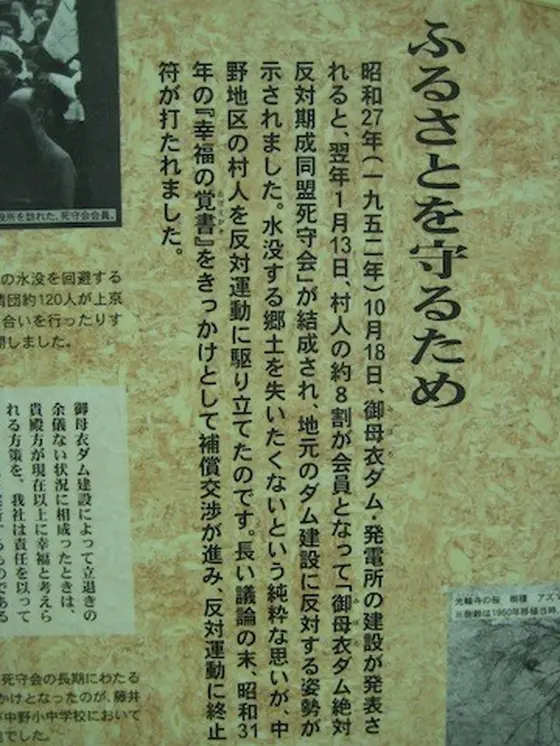 ふるさとを守るため
昭和27年(一九五二年)10月18日、御母衣ダム・発電所の建設が発表さ
れると、翌年1月13日、村人の約8割が会員となって「御母衣ダム絶対
反対期成同盟死守会」が結成され、地元のダム建設に反対する姿勢が
示されました。水没する郷土を失いたくないという純粋な思いが、中
野地区の村人を反対運動に駆り立てたのです。長い議論の末、昭和31
年の『幸福の覚書』をきっかけとして補償交渉が進み、反対運動に終止
符が打たれました。
役所を訪れた、死守会会員。
の水没を回避する
情団約120人が上京
合いを行ったりす
開しました。
御母衣ダム建設によって立退きの
余儀ない状況に相成ったときは、
貴殿方が現在以上に幸福と考えら
れる方策を、我社は責任を以って
するものである
死守会の長期にわたる
かけとなったのが、藤井
中野小中学校において
でした。
光輪寺の桜 樹種 アズマ
※樹齢は1960年移植当時